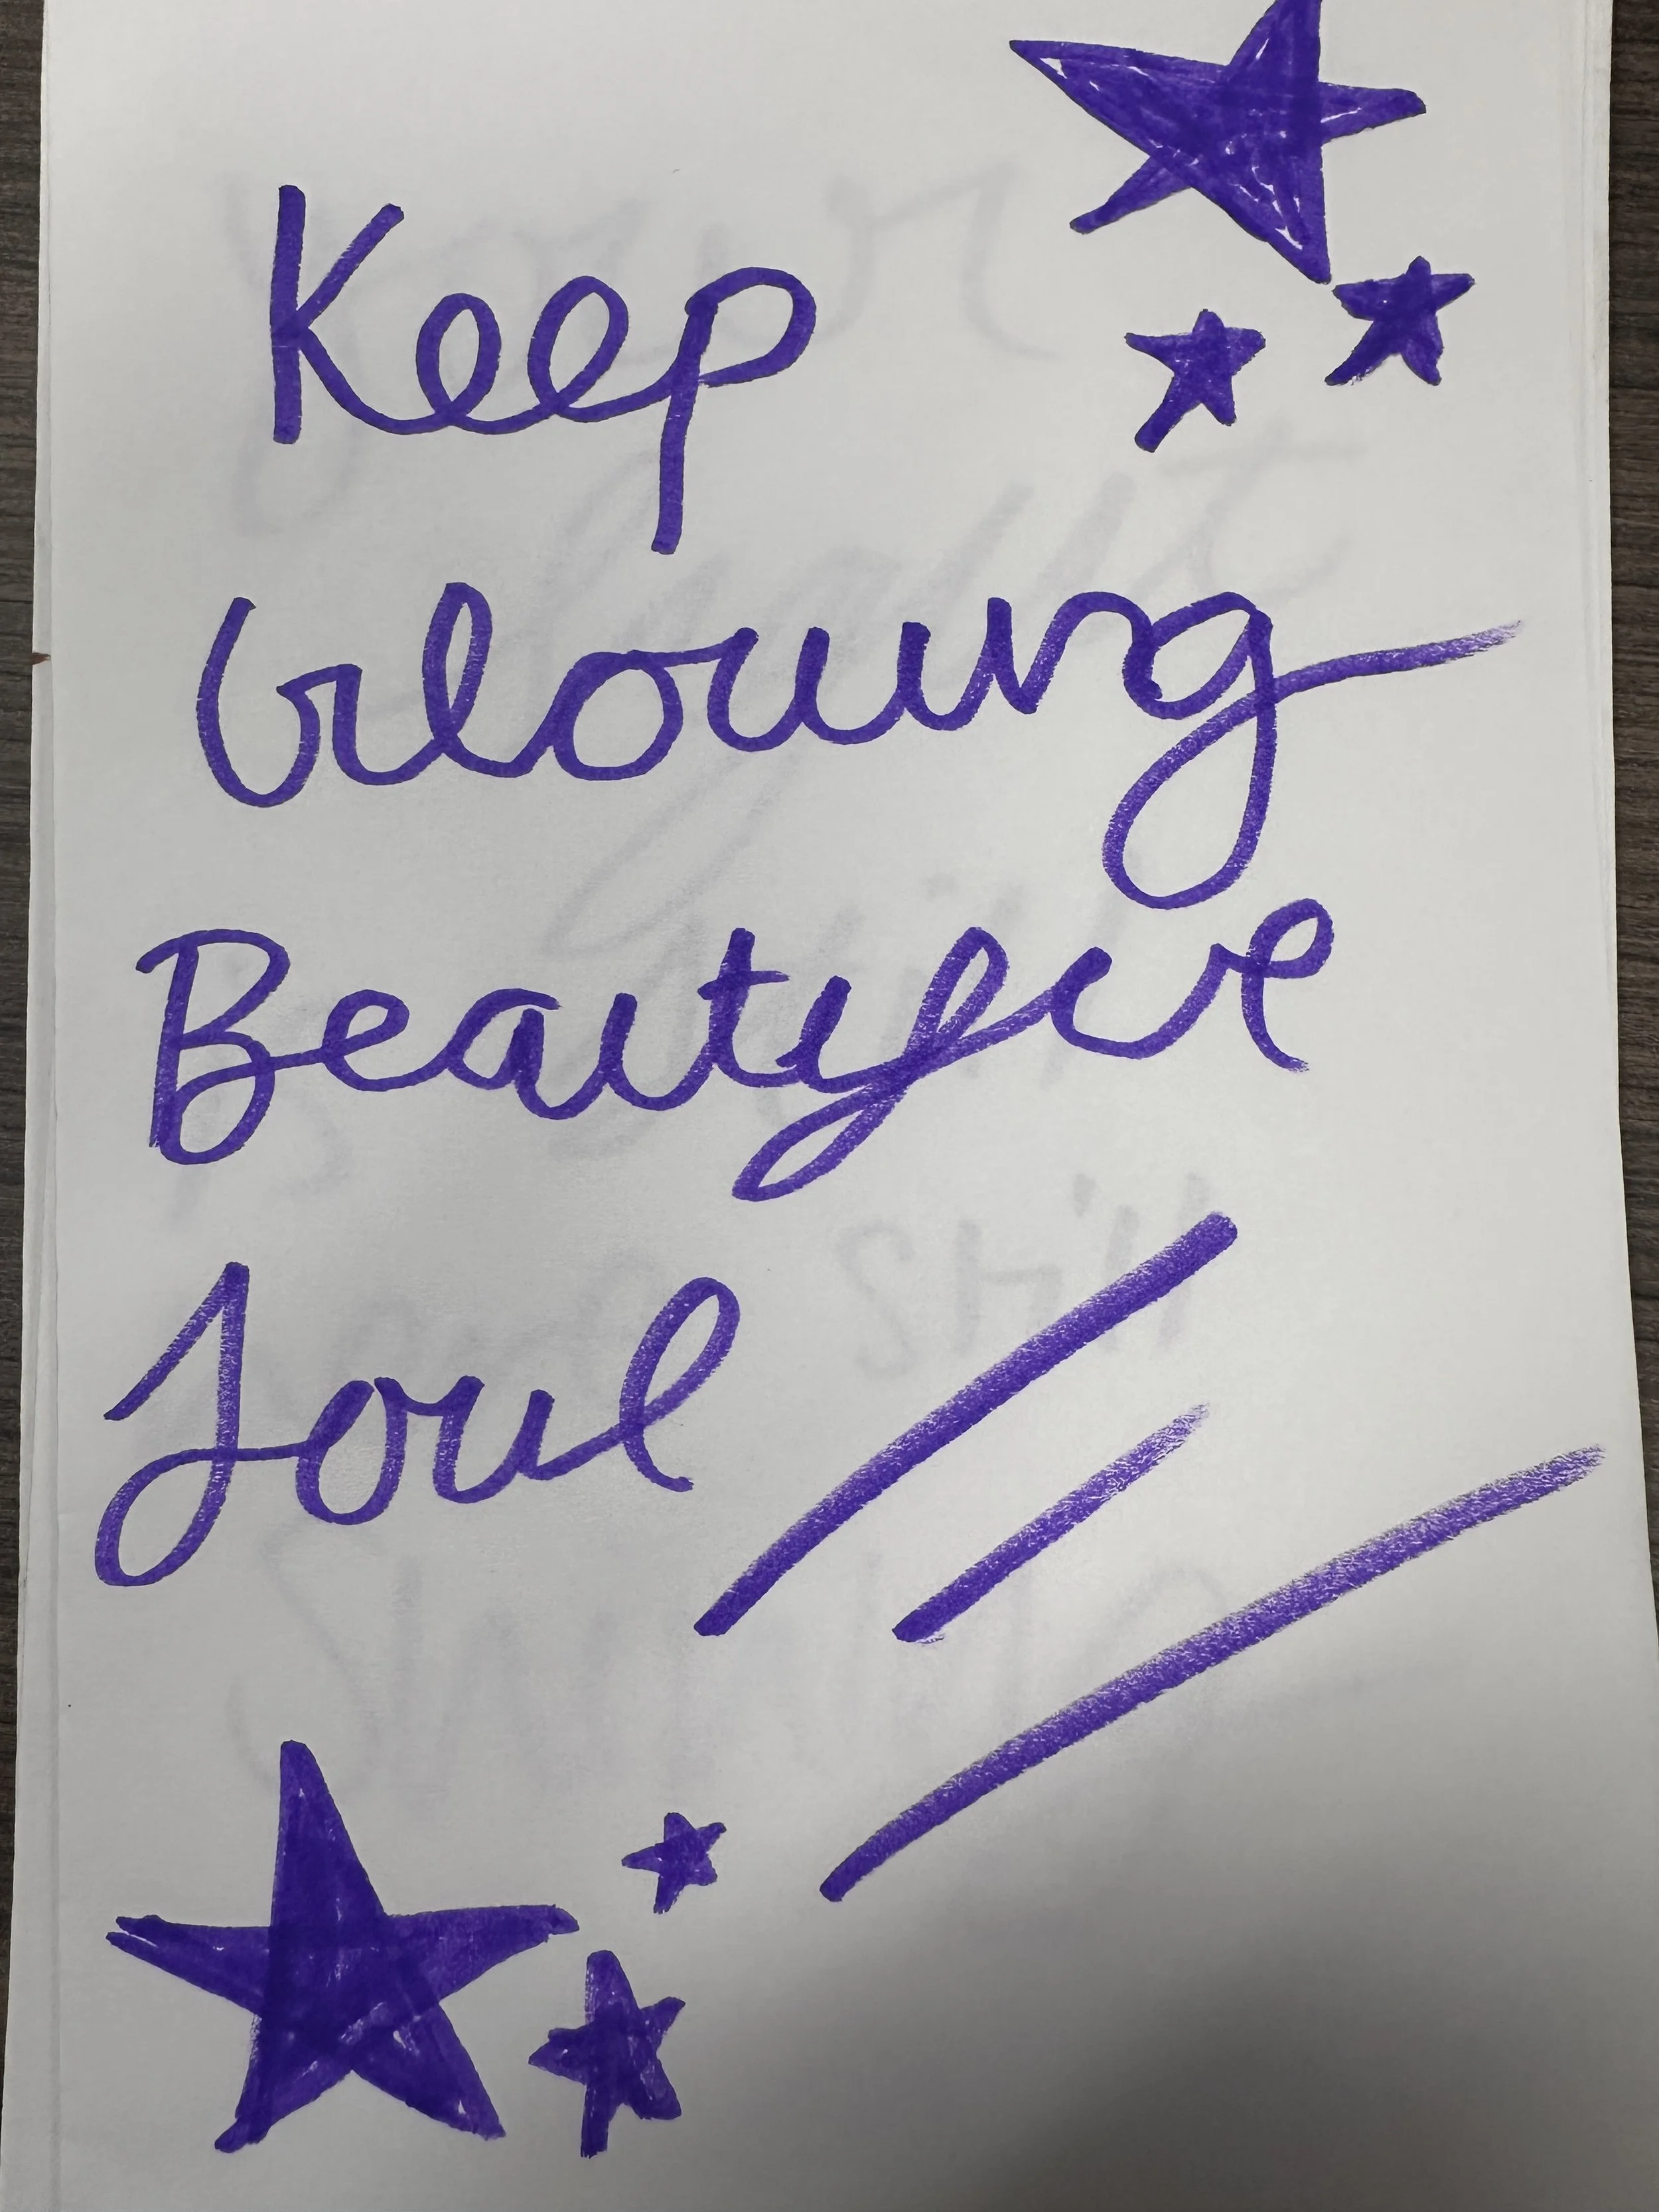 Keep
Glowing
Beautiful
Soul